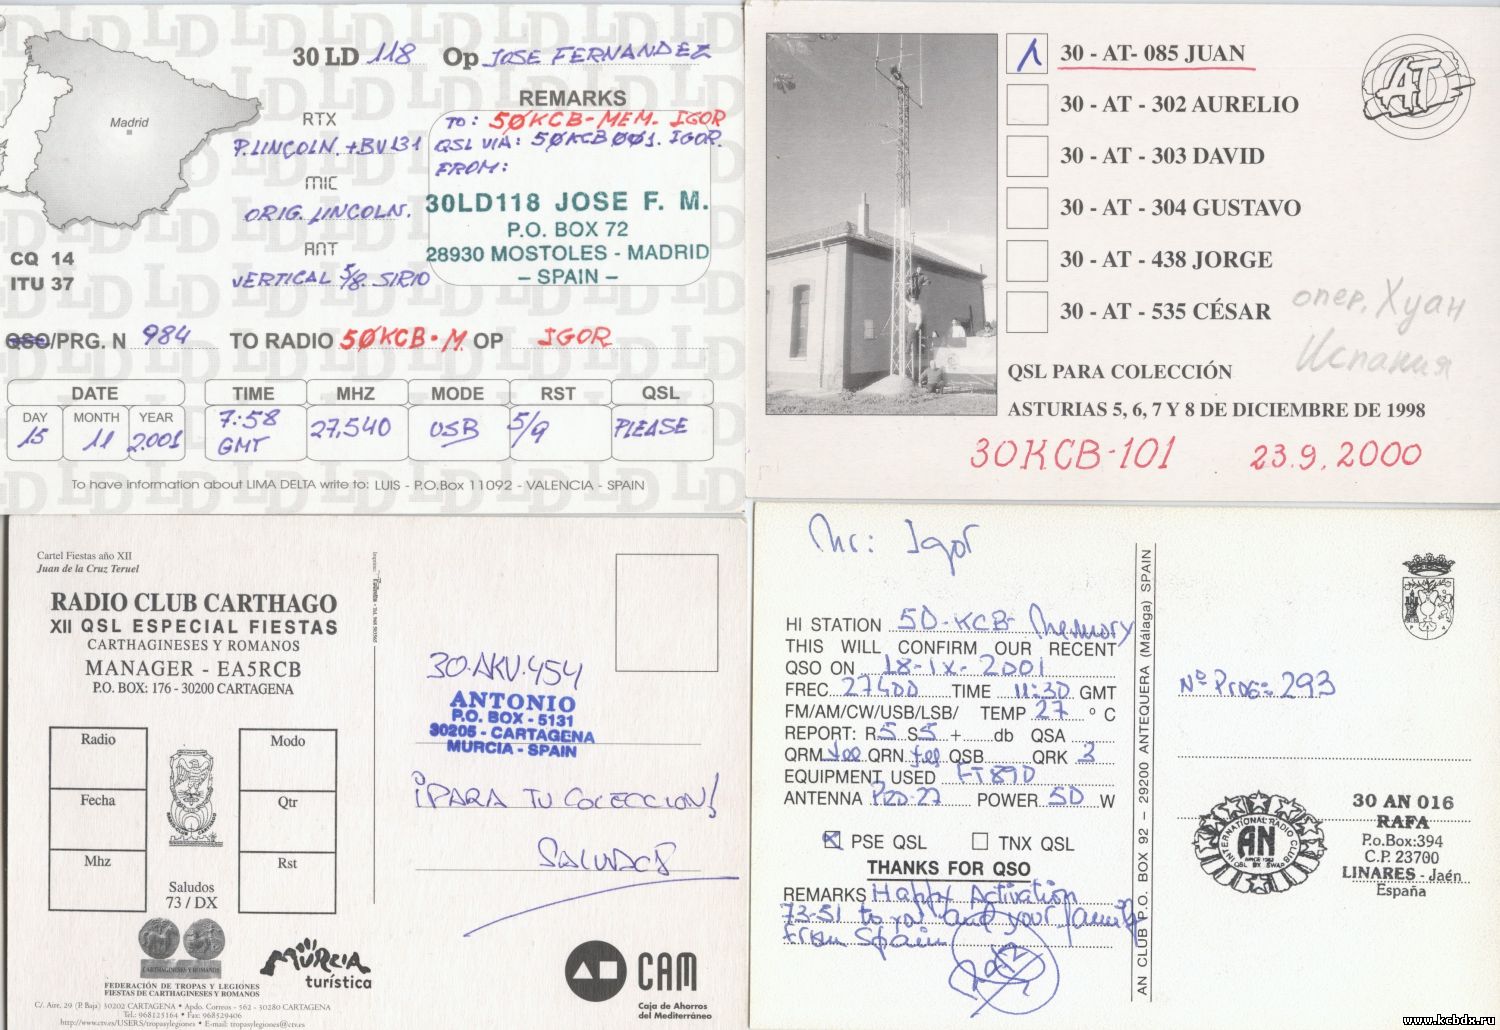 30 LD 118 Op JOSE FERNANDEZ
Madrid
RTX
P. LINCOLN. + BV131
MIC
ORIG. LINCOLN.
ANT
VERTICAL 5/8. SIRIO
REMARKS
TO: 5ØKCB-MEM. IGOR
QSL VIA: 5ØKCBØØ1. IGOR.
FROM:
30LD118 JOSE F. M.
P.O. BOX 72
28930 MOSTOLES - MADRID
– SPAIN –
CQ 14
ITU 37
QSO/PRG. N 984 TO RADIO 5ØKCB-M OP IGOR
DATE TIME MHZ MODE RST QSL
DAY MONTH YEAR
15 11 2.001 7:58 GMT 27,540 USB 5/9 PLEASE
To have information about LIMA DELTA write to: LUIS - P.O.Box 11092 - VALENCIA - SPAIN
30 - AT- 085 JUAN
30 - AT - 302 AURELIO
30 - AT - 303 DAVID
30 - AT - 304 GUSTAVO
30 - AT - 438 JORGE
30 - AT - 535 CÉSAR
AT
опер. Хуан
Испания
QSL PARA COLECCIÓN
ASTURIAS 5, 6, 7 Y 8 DE DICIEMBRE DE 1998
30KCB-101 23.9.2000
Cartel Fiestas año XII
Juan de la Cruz Teruel
RADIO CLUB CARTHAGO
XII QSL ESPECIAL FIESTAS
CARTHAGINESES Y ROMANOS
MANAGER - EA5RCB
P.O. BOX: 176 - 30200 CARTAGENA
Radio Modo
Fecha Qtr
Mhz Rst
Saludos
73 / DX
CARTHAGINESES Y ROMANOS
FEDERACIÓN DE TROPAS Y LEGIONES
FIESTAS DE CARTHAGINESES Y ROMANOS
MURCIA
turística
C/. Aire, 29 (P. Baja) 30202 CARTAGENA • Apdo. Correos - 562 - 30280 CARTAGENA
Tel.: 968125164 • Fax: 968529406
http://www.ctv.es/USERS/tropasylegiones • E-mail: tropasylegiones@ctv.es
30.AKV.454
ANTONIO
P.O. BOX - 5131
30205 - CARTAGENA
MURCIA - SPAIN
¡PARA TU COLECCION!
SALUDOS
CAM
Caja de Ahorros
del Mediterráneo
Mr: Igor
HI STATION 50-KCB- Memory
THIS WILL CONFIRM OUR RECENT
QSO ON 18-IX-2001
FREC 27400 TIME 11:30 GMT
FM/AM/CW/USB/LSB/ TEMP 27 º C
REPORT: R 5 S 5 + db QSA
QRM QRN QSB QRK 3
EQUIPMENT USED FT890
ANTENNA PZD-27 POWER 50 W
PSE QSL TNX QSL
THANKS FOR QSO
REMARKS Happy Activation
73-51 to you and your family
from Spain
AN CLUB P.O. BOX 92 – 29200 ANTEQUERA (Málaga) SPAIN
Nº PROG= 293
INTERNATIONAL RADIO CLUB
AN
SINCE 1982
QSL BY SWAP
30 AN 016
RAFA
P.o.Box:394
C.P. 23700
LINARES - Jaén
España
www.kcbdx.ru